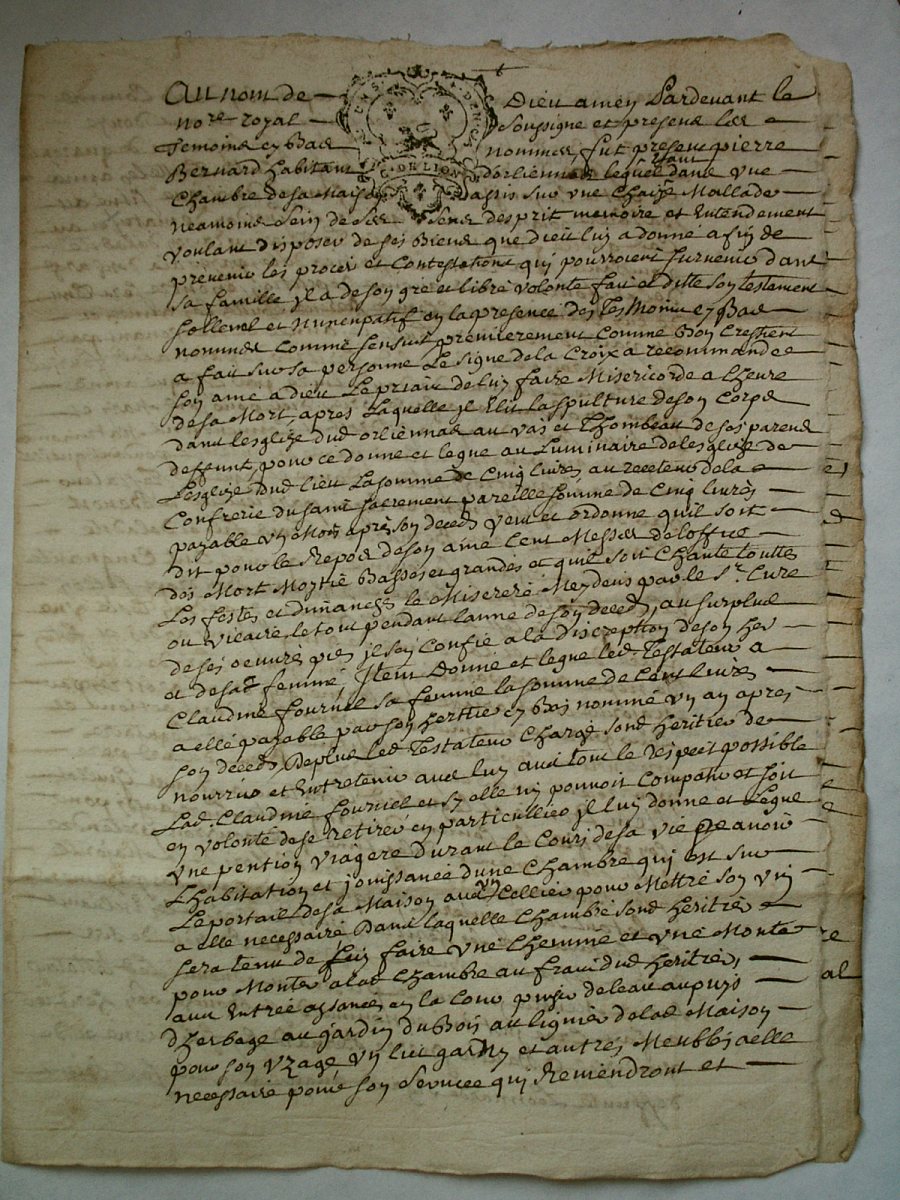 Au nom de Dieu amen Pardevant le
no.re royal Soussigne et presend les
Temoins en Bas nommes, fut present pierre
Bernard habitant d'orliennas lequel dans vne
DE LION
Chambre de sa Maison Dassis sur vne Chaize Mallade
neamoins Sein de ses Sens desprit memoire et Entendement
voulant disposer de ses Biens que dieu luy a donne afin de
prevenir les proces et Contestations qui pourroient Survenir dans
sa famille jl a de son gre et libre volonte fait et ditte son testement
sollenel et Nunenpatif en la presence des Tesmoins en Bas
nommes comme sensuit premierement comme Bon Crestient
a fait sur sa personne Le signe de la Croix a recommandee
son ame a dieu Le priant de luy faire Misericorde a lheure
de sa Mort, apres Laquelle jl Elit la spulture de son Corps
dans lesglize dud orliennas au vas et Thombeau de ses parens
deffunt, pour ce donne et legue au Luminaire de lesglize de
Lesglize dud lieu La somme de Cinq livres, au recteur de la
Confrerie du saint sacrement pareille somme de Cinq livres
payable vn Mois apres son deceds veut et ordonne qu'il soit
dit pour le Repos de son ame Cent Messes de loffice
dos Mort Moytie Basses et grandes et quil soit Chante touttes
Les festes et dimanches le Miserere Mey deus par le S.r Cure
ou vicaire, le tout pendant lanne de son deceds, au surplus
de ses oeuvres pies jl sen Confie a la discreption de son her
et de sad femme, Jtem donne et legue led. Testateur a
Claudine fournel sa femme la somme de Cent livres
a elle payable par son herttier en Bas nommé vn an apres
son deceds, Deplus led Testateur Charge sond heritier de
nourrir et Entretenir aud luy aud tout le respect possible
Lad. Claudine fournel et sy elle ny pouvoit Compatir et soit
en volonté de se retirer en particullier jl luy donne et legue
vne pention viagere durant le Cours de sa vie De avoir
Lhabitation et jouissance dune Chambre qui est sur
Le portail de sa Maison aud vn Cellier pour Mettre son vin
a elle necessaire Dans laquelle Chambre sond heritier
sera tenu de luy faire vne Cheminé et vne Monte
pour Monter a lad Chambre au frais dud heritier,
aux Entree aysances en la Cour puiser de leau au puys
dherbage au jardin du Bois au lignier de lad Maison
pour son vzage vn lict garny et autres Meubles a elle
necessaire pour son Service qui Reviendront et